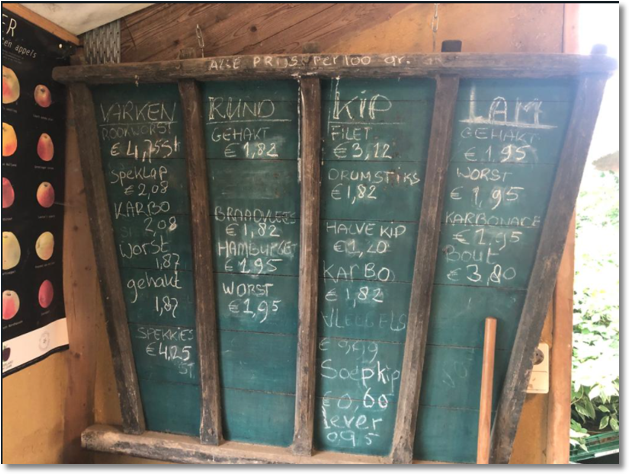 ALLE PRIJS PER 100 gr.
VARKEN
ROOKWORST
€ 4,75 st
Speklap
€ 2,08
KARBO
2,08
Worst
1,87
gehakt
1,87
SPEKKIES
€ 4,25
ST
RUND
GEHAKT
€ 1,82
BRAADVLEES
€ 1,82
HAMBURGER
€ 1,95
WORST
€ 1,95
KIP
FILET
€ 3,12
DRUMSTIKS
€ 1,82
HALVE KID
€ 1,20
KARBO
€ 1,82
VLEUGELS
Soepkip
€ 0,60
lever
0,95
LAM
GEHAKT
€ 1,95
WORST
€ 1,95
KARBONADE
€ 1,95
Bout
€ 3,80